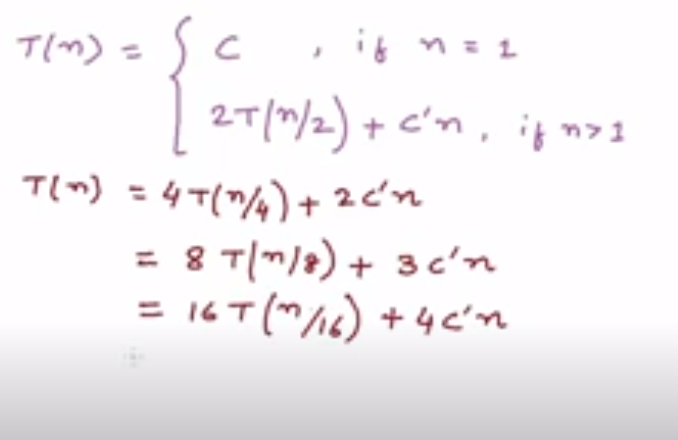 T(n) = { C , if n = 1
2T(n/2) + c'n, if n>1
T(n) = 4T(n/4) + 2c'n
= 8 T(n/8) + 3c'n
= 16 T(n/16) + 4c'n